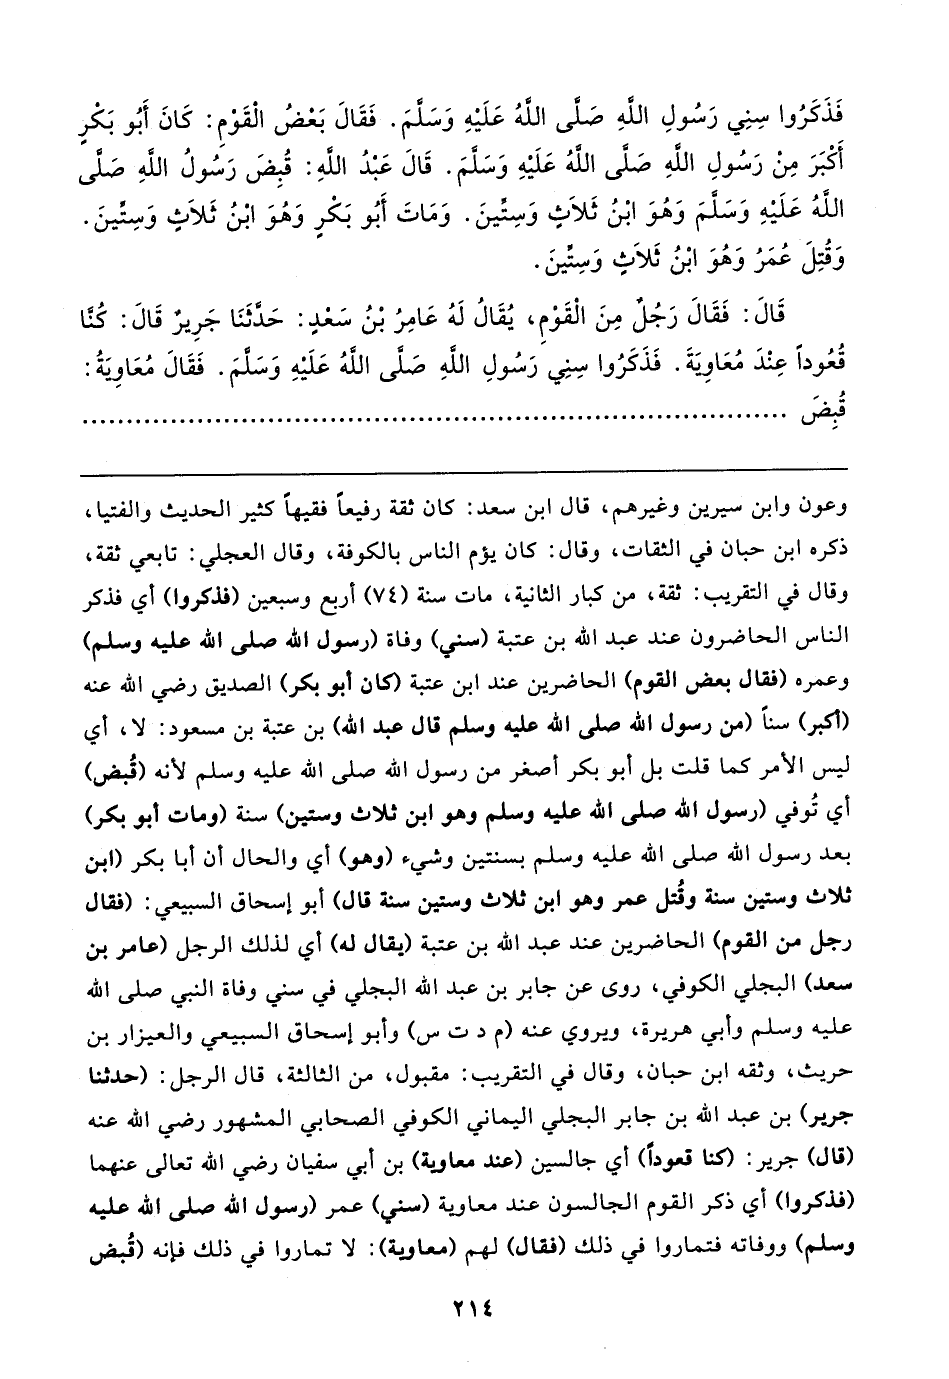 فَذَكَرُوا سِنِي رَسُولِ اللَّهِ صَلَّى اللَّهُ عَلَيْهِ وَسَلَّمَ. فَقَالَ بَعْضُ الْقَوْمِ: كَانَ أَبُو بَكْرٍ
أَكْبَرَ مِنْ رَسُولِ اللَّهِ صَلَّى اللَّهُ عَلَيْهِ وَسَلَّمَ. قَالَ عَبْدُ اللَّهِ: قُبِضَ رَسُولُ اللَّهِ صَلَّى
اللَّهُ عَلَيْهِ وَسَلَّمَ وَهُوَ ابْنُ ثَلاَثٍ وَسِتِّينَ. وَمَاتَ أَبُو بَكْرٍ وَهُوَ ابْنُ ثَلاَثٍ وَسِتِّينَ.
وَقُتِلَ عُمَرُ وَهُوَ ابْنُ ثَلاَثٍ وَسِتِّينَ.
قَالَ: فَقَالَ رَجُلٌ مِنَ الْقَوْمِ، يُقَالُ لَهُ عَامِرُ بْنُ سَعْدٍ: حَدَّثَنَا جَرِيرٌ قَالَ: كُنَّا
قُعُوداً عِنْدَ مُعَاوِيَةَ. فَذَكَرُوا سِنِي رَسُولِ اللَّهِ صَلَّى اللَّهُ عَلَيْهِ وَسَلَّمَ. فَقَالَ مُعَاوِيَةُ:
قُبِضَ ................................................................
وعون وابن سيرين وغيرهم، قال ابن سعد: كان ثقة رفيعاً فقيهاً كثير الحديث والفتيا،
ذكره ابن حبان في الثقات، وقال: كان يؤم الناس بالكوفة، وقال العجلي: تابعي ثقة،
وقال في التقريب: ثقة، من كبار الثانية، مات سنة (٧٤) أربع وسبعين (فذكروا) أي فذكر
الناس الحاضرون عند عبد الله بن عتبة (سني) وفاة (رسول الله صلى الله عليه وسلم)
وعمره (فقال بعض القوم) الحاضرين عند ابن عتبة (كان أبو بكر) الصديق رضي الله عنه
(أكبر) سناً (من رسول الله صلى الله عليه وسلم قال عبد الله) بن عتبة بن مسعود: لا، أي
ليس الأمر كما قلت بل أبو بكر أصغر من رسول الله صلى الله عليه وسلم لأنه (قُبض)
أي تُوفي (رسول الله صلى الله عليه وسلم وهو ابن ثلاث وستين) سنة (ومات أبو بكر)
بعد رسول الله صلى الله عليه وسلم بسنتين وشيء (وهو) أي والحال أن أبا بكر (ابن
ثلاث وستين سنة وقُتل عمر وهو ابن ثلاث وستين سنة قال) أبو إسحاق السبيعي: (فقال
رجل من القوم) الحاضرين عند عبد الله بن عتبة (يقال له) أي لذلك الرجل (عامر بن
سعد) البجلي الكوفي، روى عن جابر بن عبد الله البجلي في سني وفاة النبي صلى الله
عليه وسلم وأبي هريرة، ويروي عنه (م د ت س) وأبو إسحاق السبيعي والعيزار بن
حريث، وثقه ابن حبان، وقال في التقريب: مقبول، من الثالثة، قال الرجل: (حدثنا
جرير) بن عبد الله بن جابر البجلي اليماني الكوفي الصحابي المشهور رضي الله عنه
(قال) جرير: (كنا قعوداً) أي جالسين (عند معاوية) بن أبي سفيان رضي الله تعالى عنهما
(فذكروا) أي ذكر القوم الجالسون عند معاوية (سني) عمر (رسول الله صلى الله عليه
وسلم) ووفاته فتماروا في ذلك (فقال) لهم (معاوية): لا تماروا في ذلك فإنه (قُبض
٢١٤